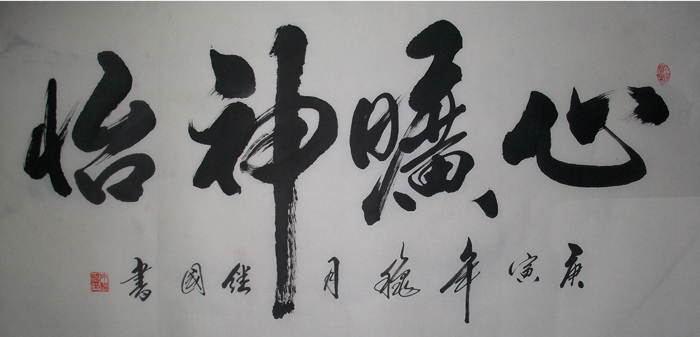 心曠神怡
庚寅年穐月繼國書